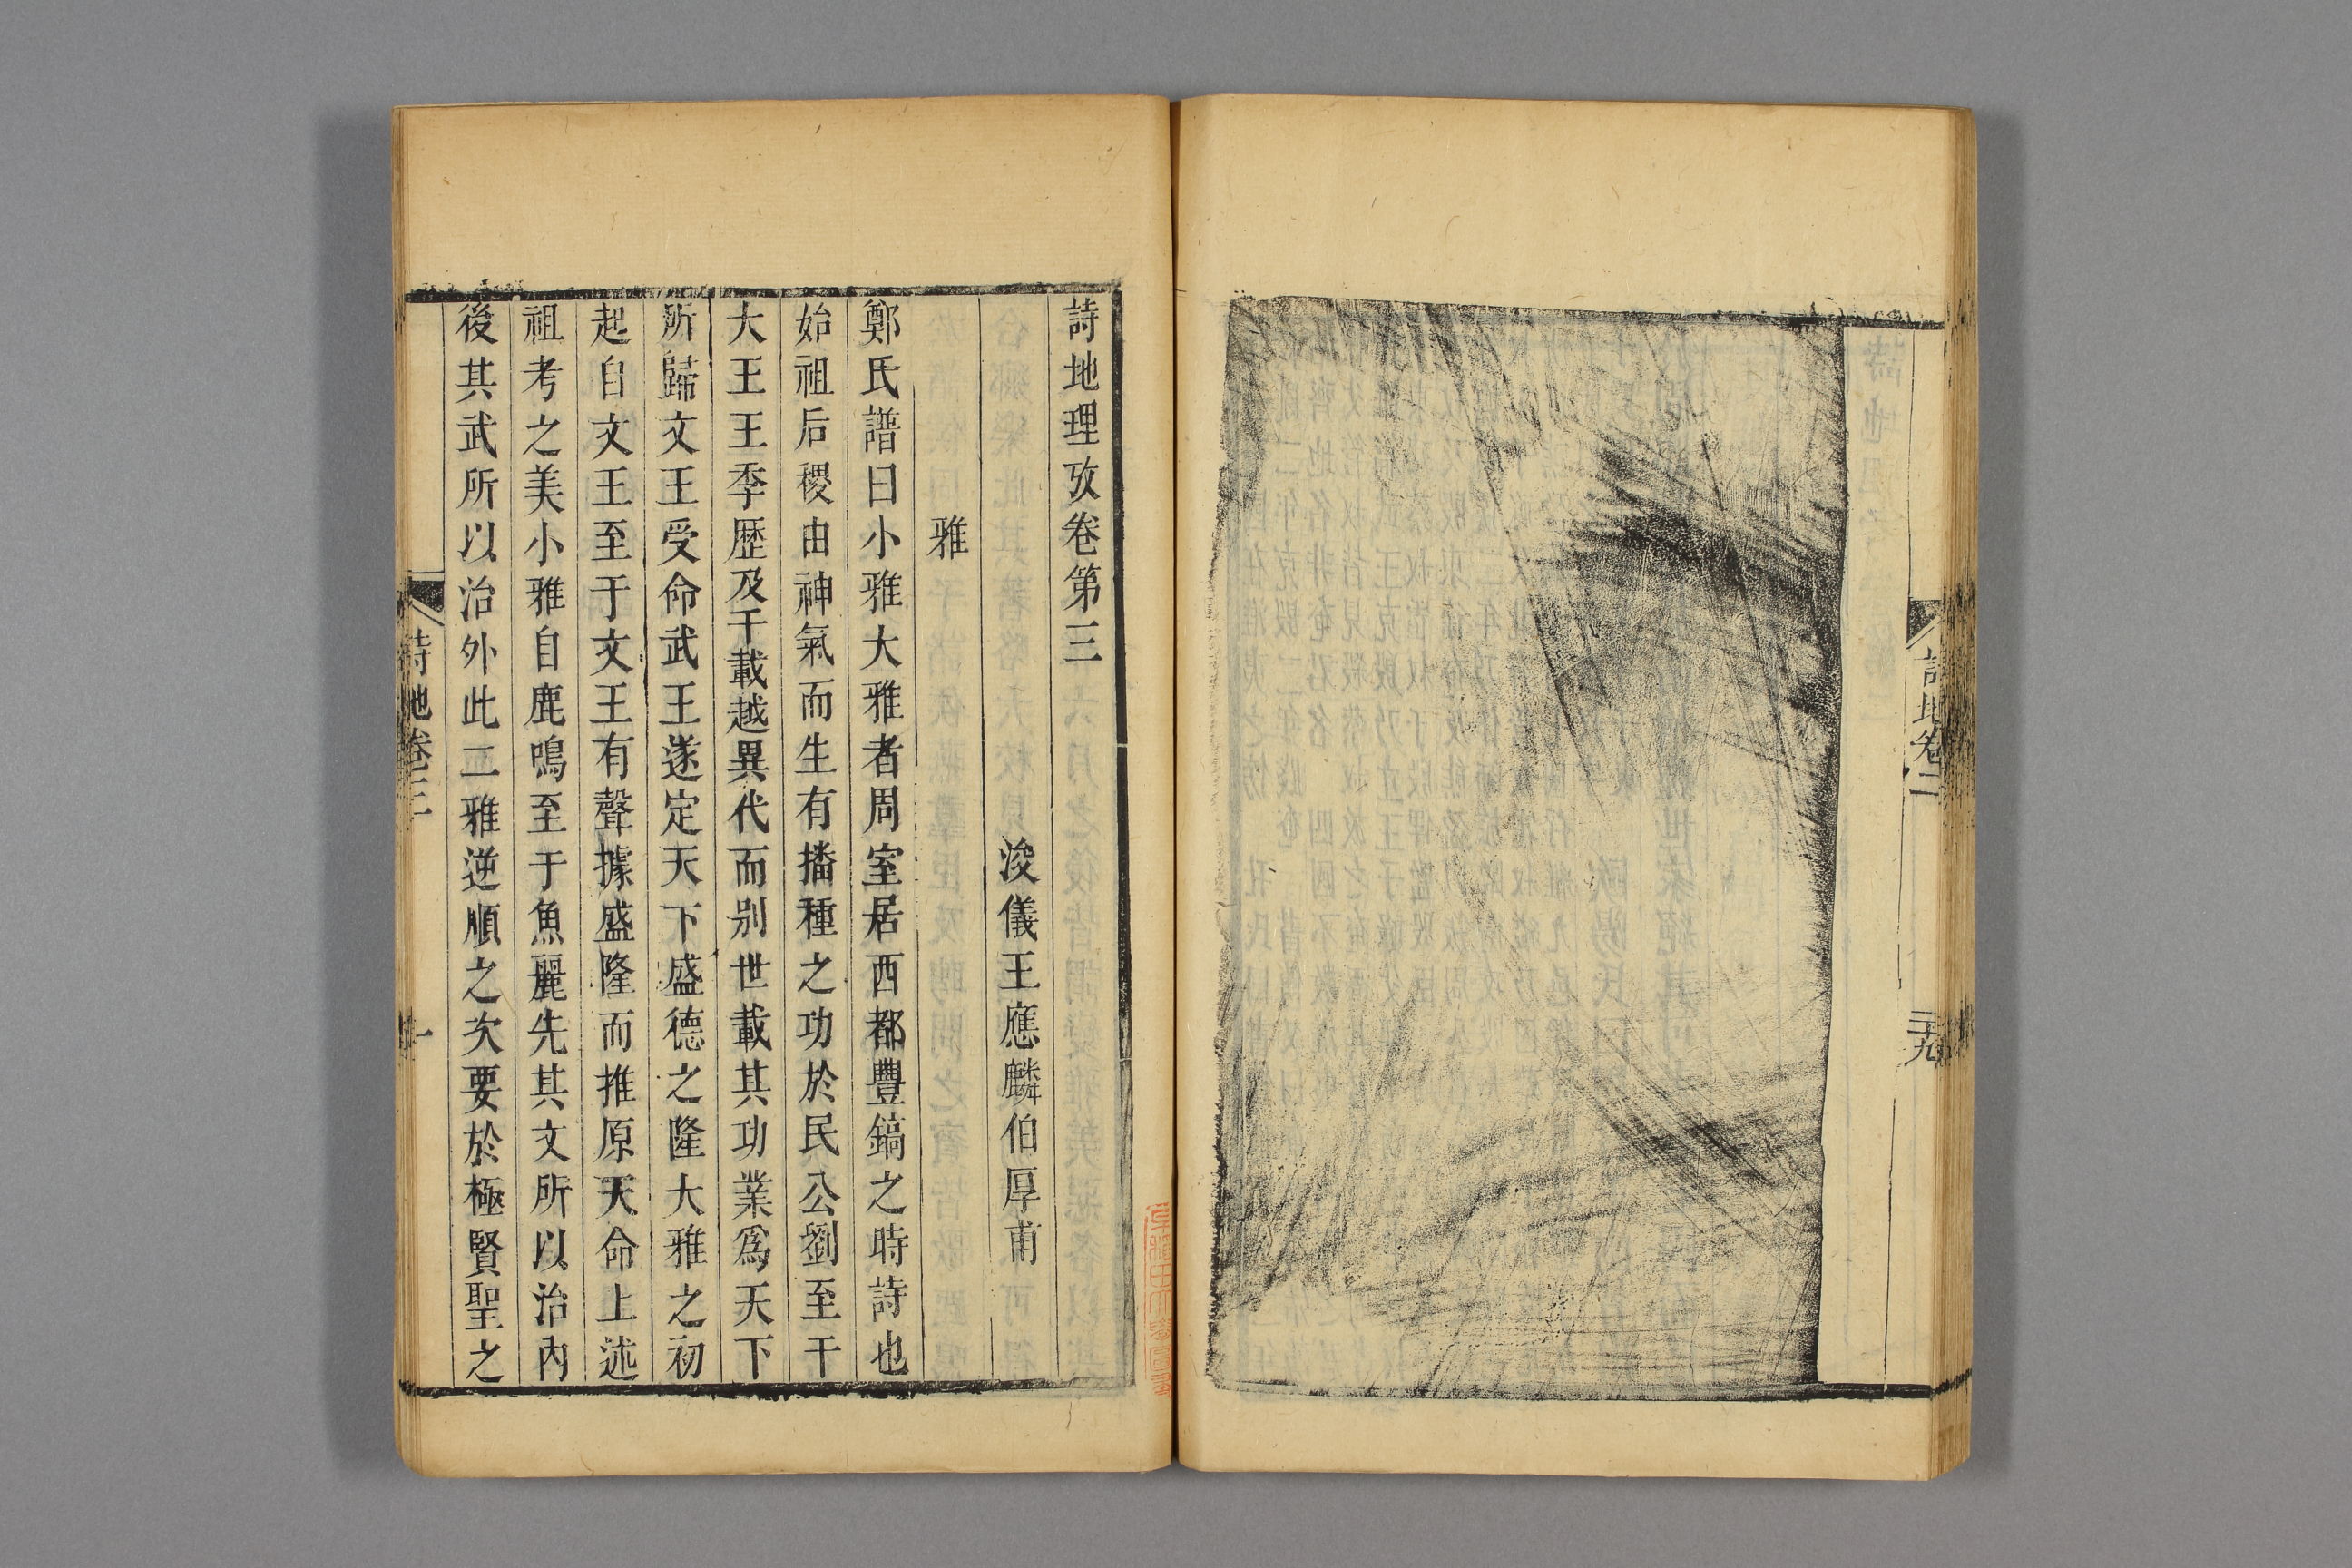 詩地卷二
二十九
詩地理攷卷第三
浚儀王應麟伯厚甫
雅
鄭氏譜曰小雅大雅者周室居西都豐鎬之時詩也
始祖后稷由神氣而生有播種之功於民公劉至于
大王王季歷及千載越異代而别世載其功業爲天下
所歸文王受命武王遂定天下盛德之隆大雅之初
起自文王至于文王有聲據盛隆而推原天命上述
祖考之美小雅自鹿鳴至于魚麗先其文所以治內
後其武所以治外此二雅逆順之次要於極賢聖之
詩地卷三
一